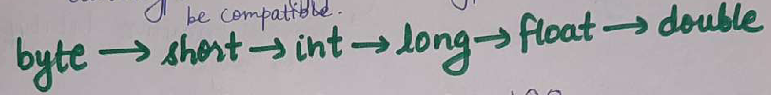 be compatible.
byte → short → int → long → float → double